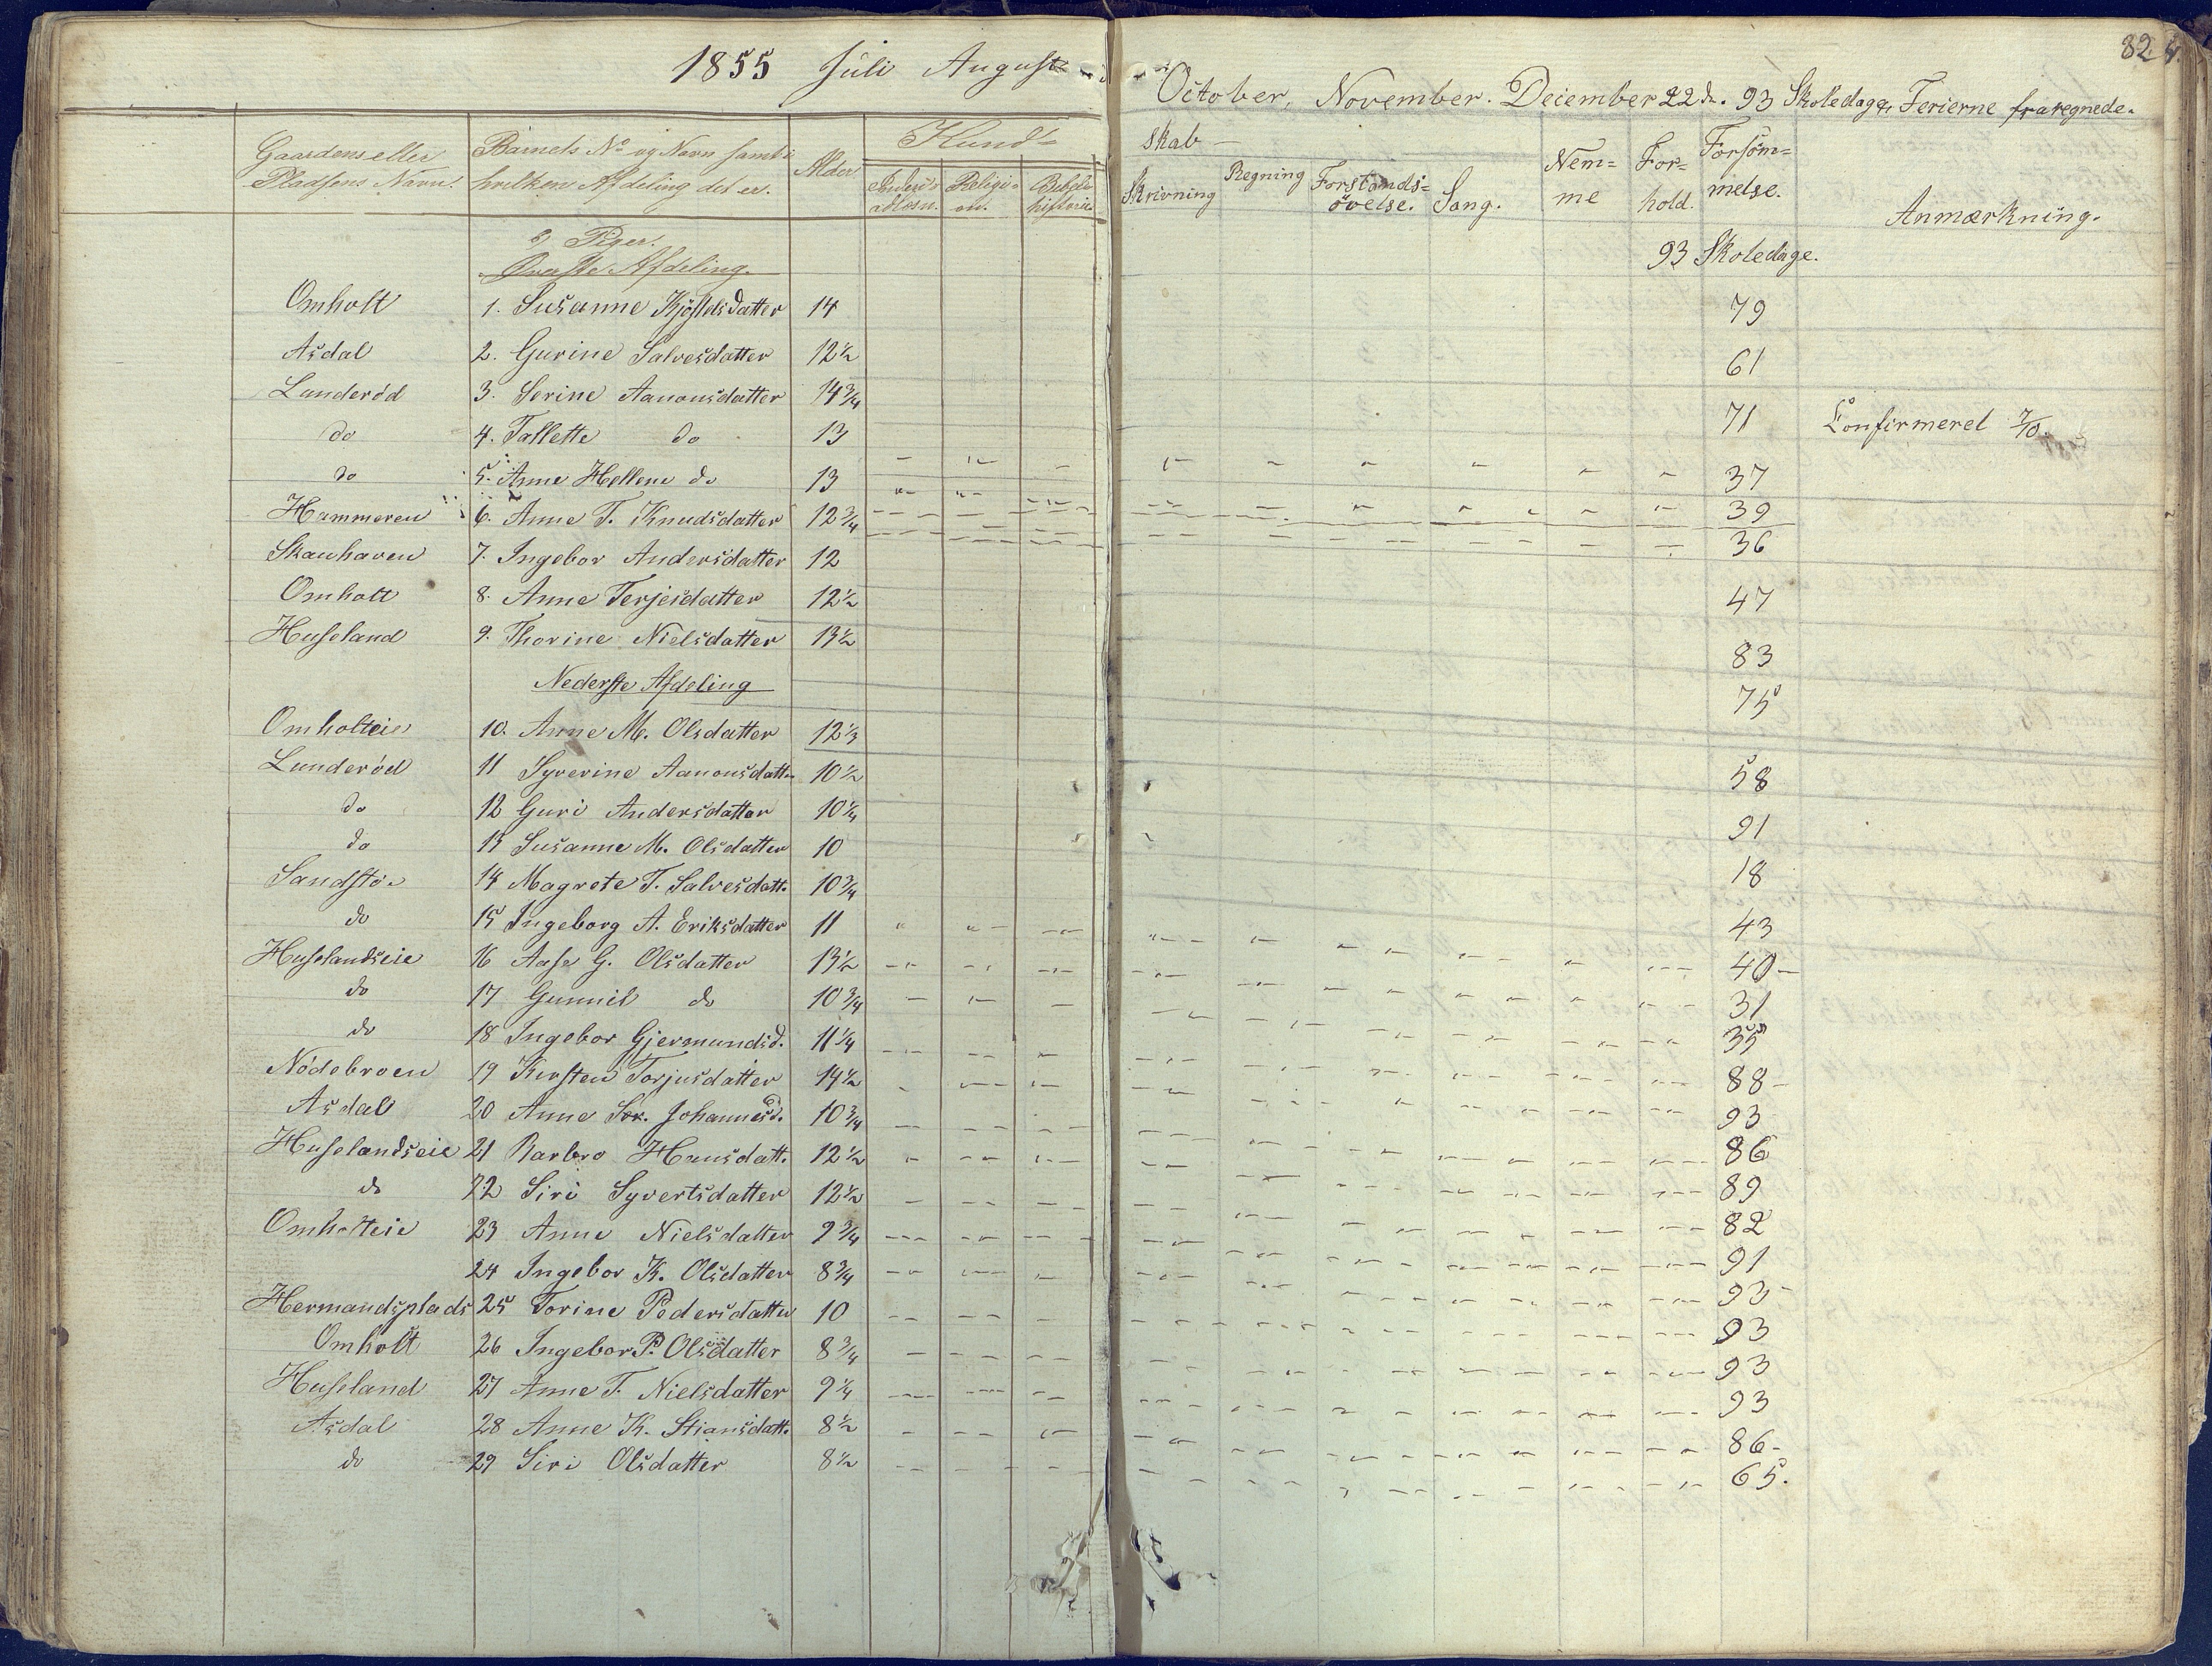 82
1855 Juli August
October, November. December 22de. 93 Skoledage, Ferierne fraregnede.
Gaardens eller Pladsens Navn.
Barnets No og Navn samt i hvilken Afdeling det er.
Alder
Kund=
skab
Religi=on.
Bibelhistorie.
Skrivning
Regning
Forstands=övelse.
Sang.
Nem=me
For=hold.
Forsöm=melse.
Anmærkning.
Piger.
Øverste Afdeling.
93 Skoledage.
Omholt 1. Susanne Kjöstelsdatter 14 79
Asdal 2. Gurine Salvesdatter 12½ 61
Lunderød 3. Serine Aanonsdatter 14¾ 71 Confirmeret 7/10
do 4. Tallette do 13 37
do 5. Anne Hellene do 13 39
Hammeren 6. Anne T. Knudsdatter 12¾ 36
Skauhaven 7. Ingebor Andersdatter 12 47
Omholt 8. Anne Terjesdatter 12½ 83
Huseland 9. Thorine Nielsdatter 13½ 75
Nederste Afdeling
Omholteie 10. Anne M. Olsdatter 12⅓ 58
Lunderød 11 Syverine Aanonsdatter 10½ 91
do 12 Guri Andersdatter 10¼ 18
do 13 Susanne M. Olsdatter 10 43
Sandstø 14 Magrete T. Salvesdatt. 10¾ 40
do 15 Ingeborg A. Eriksdatter 11 31
Huselandseie 16 Aase G. Olsdatter 13½ 35
do 17 Gunnil do 10¾ 88
do 18 Ingebor Gjermundsd. 11¼ 93
Nödebroen 19 Kirsten Torjusdatter 14½ 86
Asdal 20 Anne Sor. Johannesd. 10¾ 89
Huselandseie 21 Barbro Hansdatt. 12½ 82
do 22 Siri Syvertsdatter 12½ 91
Omholteie 23 Anne Nielsdatter 9¾ 93
24 Ingebor K. Olsdatter 8¾ 93
Hermandsplads 25 Torine Pedersdatter 10 93
Omholt 26 Ingebor P. Olsdatter 8¾ 93
Huseland 27 Anne T. Nielsdatter 9¼ 86
Asdal 28 Anne K. Stiansdatt. 8½ 65.
do 29 Siri Olsdatter 8½